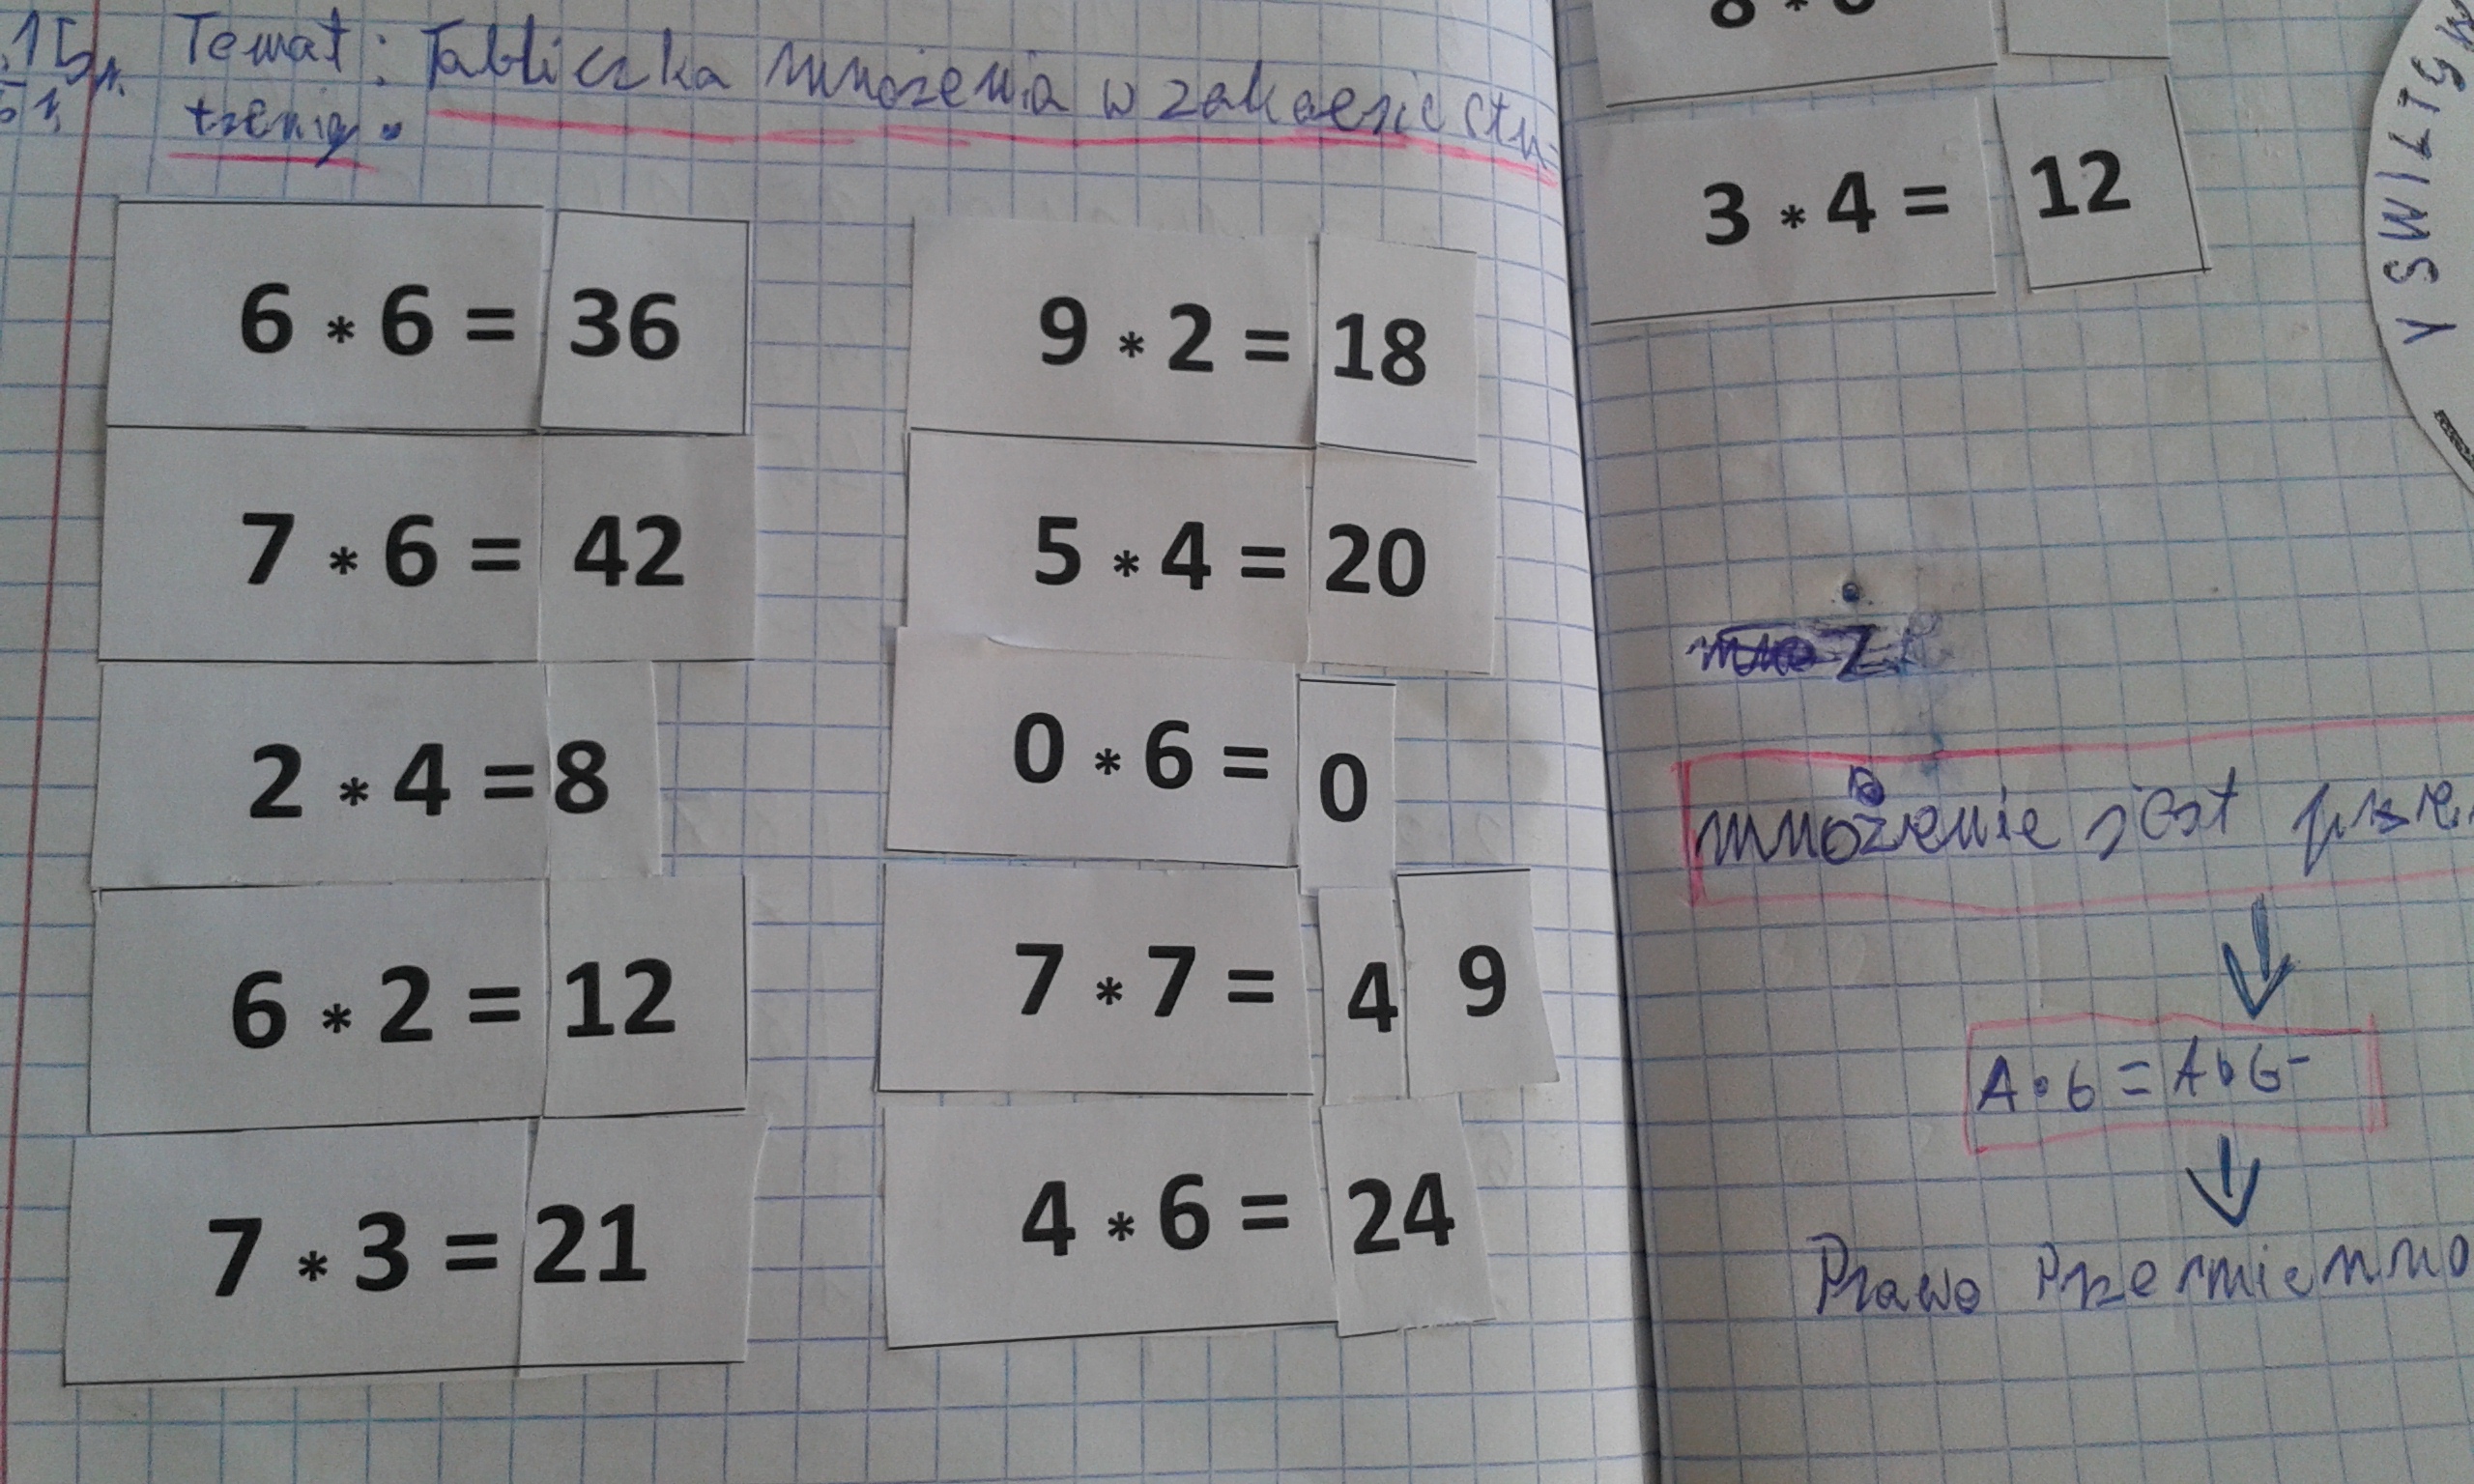 15r. Temat: Tabliczka mnożenia w zakresie stu-
6 * 6 = 36
7 * 6 = 42
2 * 4 = 8
6 * 2 = 12
7 * 3 = 21
9 * 2 = 18
5 * 4 = 20
0 * 6 = 0
7 * 7 = 49
4 * 6 = 24
3 * 4 = 12
mnożenie jest prze
A • 6 = A • 6
Prawo Przemienno